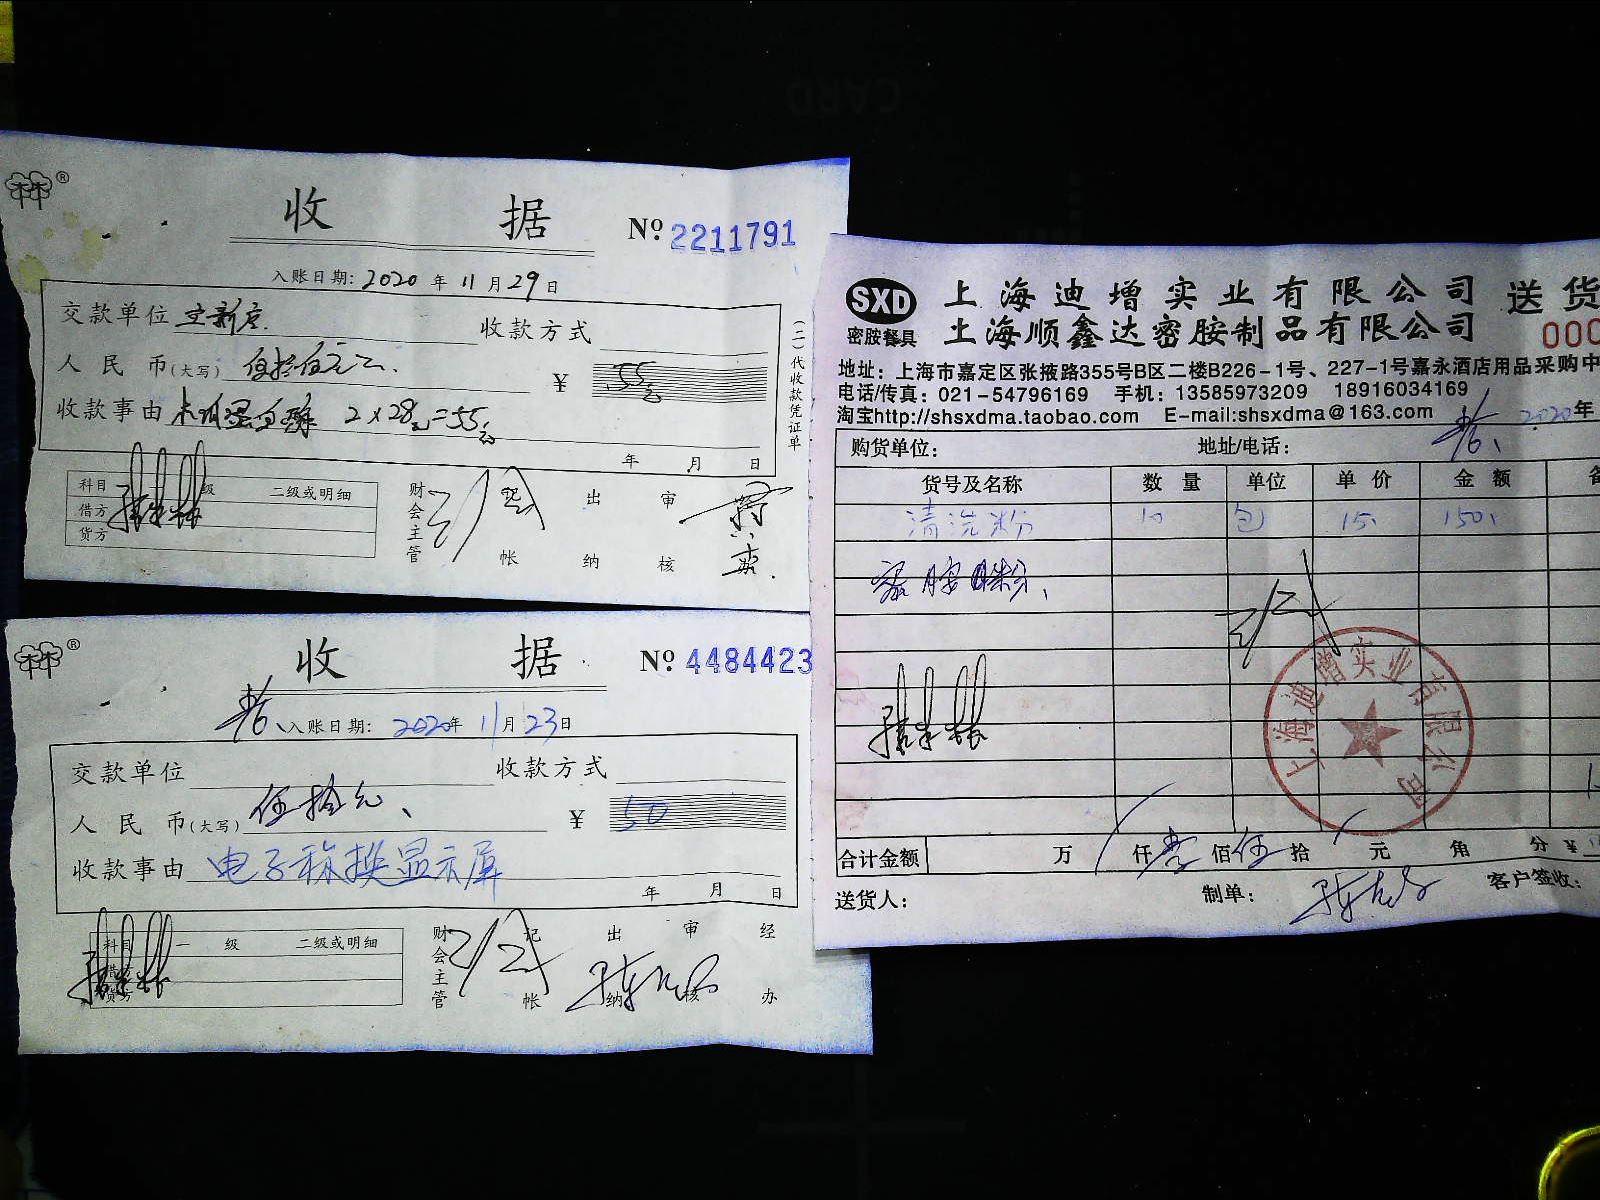 CARD
®
收 据 Nº 2211791
入账日期: 2020 年 11 月 29 日
交款单位 收款方式
人民币(大写) 伍拾伍元 ¥ 55元
收款事由 2×28元=55元
年 月 日
(二)代收款凭证单
科目 级 二级或明细
借方
贷方
财会主管 记帐 出纳 审核
®
收 据 Nº 4484423
入账日期: 2020年 11月 23日
交款单位 收款方式
人民币(大写) 伍拾元、 ¥ 50
收款事由 电子称换显示屏
年 月 日
科目 一 级 二级或明细
借方
贷方
财会主管 记帐 出纳 审核 经办
SXD
密胺餐具
上海迪增实业有限公司 送货
上海顺鑫达密胺制品有限公司 000
地址：上海市嘉定区张掖路355号B区二楼B226-1号、227-1号嘉永酒店用品采购中
电话/传真：021-54796169 手机：13585973209 18916034169
淘宝http://shsxdma.taobao.com E-mail:shsxdma@163.com
2020年
购货单位： 地址/电话：
货号及名称 数 量 单位 单 价 金 额
清洗粉 10 包 15 150
密胺粉、
上海迪增实业有限公司
合计金额 万 仟 壹 佰 伍 拾 元 角 分 ¥
送货人： 制单： 客户签收：